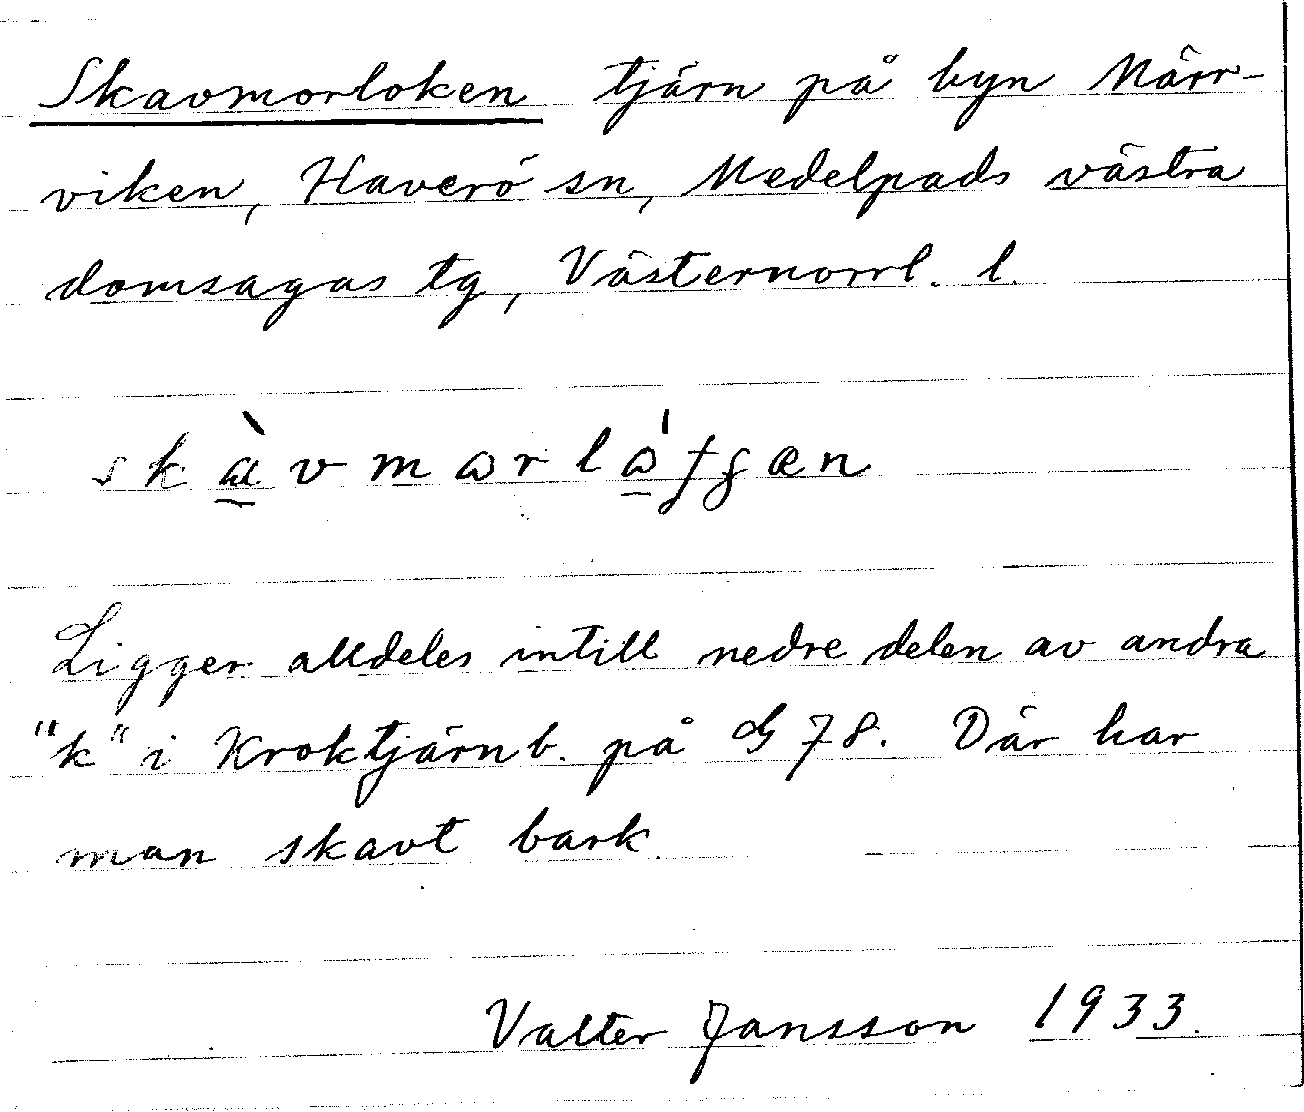 Skavmorloken tjärn på byn Märr-
viken, Haverö sn, Medelpads västra
domsagas tg, Västernorrl. l.
Ligger alldeles intill nedre delen av andra
"k" i Kroktjärnb. på G 78. Där har
man skavt bark.
Valter Jansson 1933.